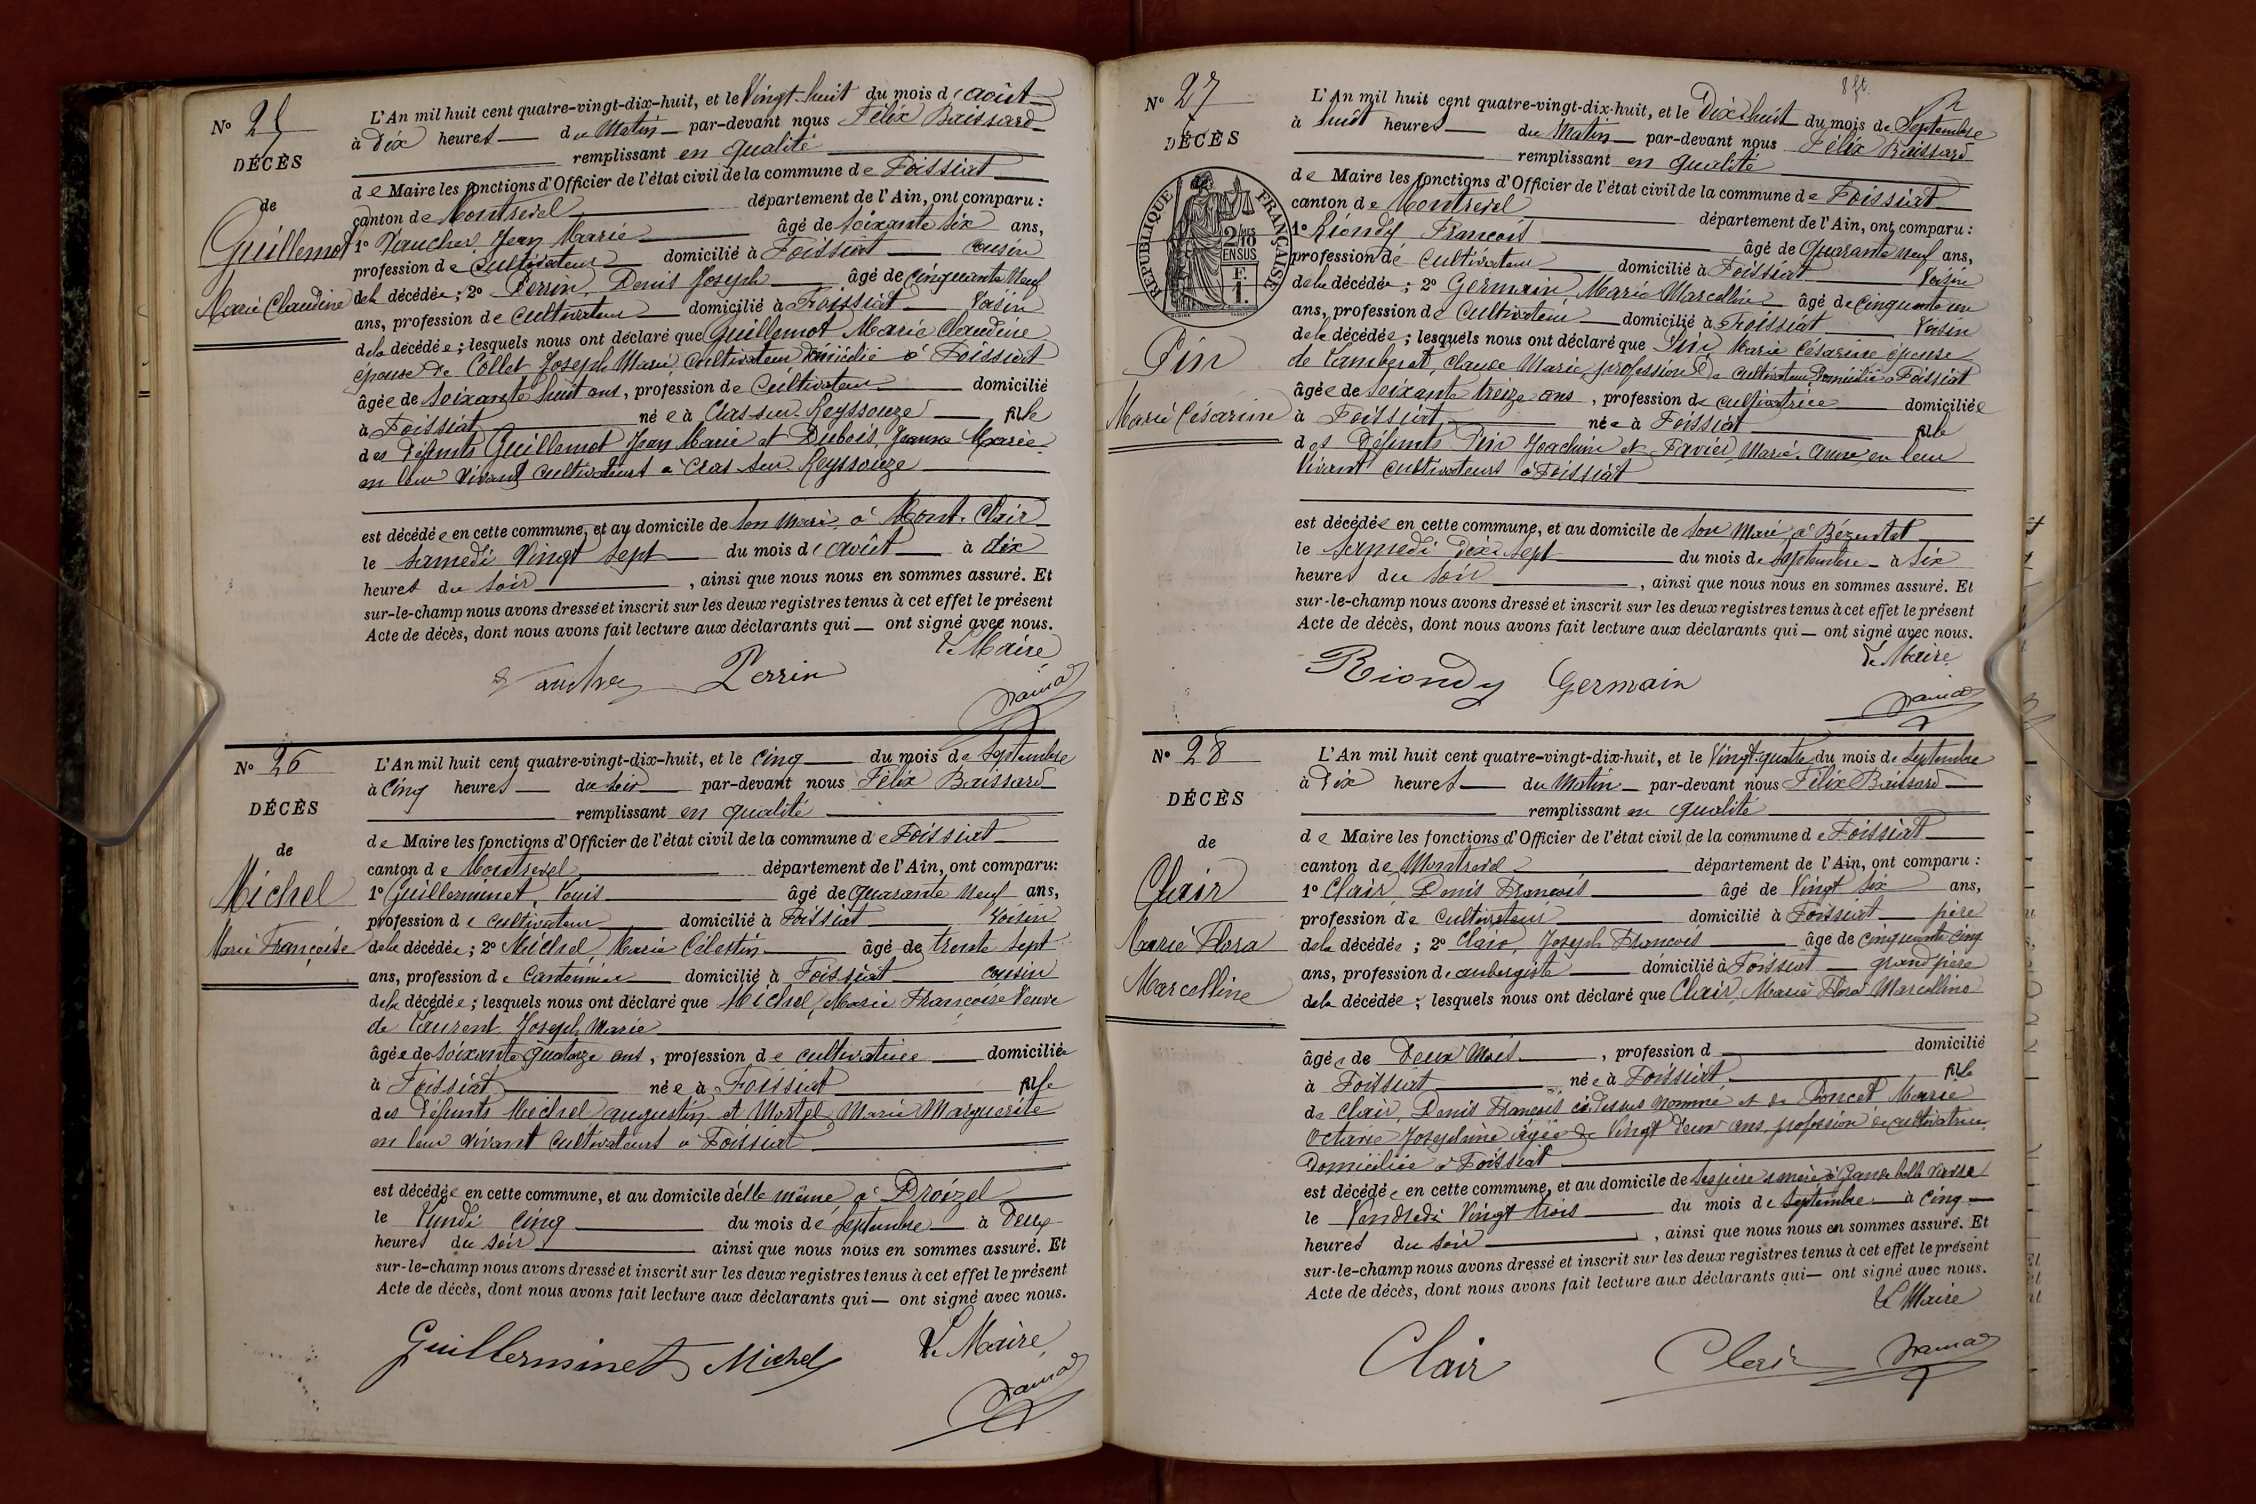 N° 25
DÉCÈS
de
Guillemot
Marie Claudine
L'An mil huit cent quatre-vingt-dix-huit, et le Vingt-huit du mois d'août
à Dix heures du Matin par-devant nous Félix Baissard
remplissant en qualité
de Maire les fonctions d'Officier de l'état civil de la commune de Foissiat
canton de Montrevel département de l'Ain, ont comparu :
1° Vaucher Jean Marie âgé de soixante six ans,
profession de Cultivateur domicilié à Foissiat cousin
de la décédée ; 2° Perrin, Denis Joseph âgé de cinquante neuf
ans, profession de cultivateur domicilié à Foissiat Voisin
de la décédée ; lesquels nous ont déclaré que Guillemot Marie Claudine
épouse de Collet Joseph Marie, Cultivateur domicilié à Foissiat
âgée de soixante huit ans, profession de Cultivateur domicilié
à Foissiat née à Cras sur Reyssouze fille
des Défunts Guillemot Jean Marie et Dubois, Jeanne Marie
en leur vivant cultivateurs à Cras sur Reyssouze
est décédée en cette commune, et au domicile de son Mari à Mont-Clair
le samedi Vingt sept du mois d'août à dix
heures du soir, ainsi que nous nous en sommes assuré. Et
sur-le-champ nous avons dressé et inscrit sur les deux registres tenus à cet effet le présent
Acte de décès, dont nous avons fait lecture aux déclarants qui — ont signé avec nous.
Le Maire
Perrin
N° 26
DÉCÈS
de
Michel
Marie Françoise
L'An mil huit cent quatre-vingt-dix-huit, et le cinq du mois de Septembre
à Cinq heures du soir par-devant nous Félix Baissard
remplissant en qualité
de Maire les fonctions d'Officier de l'état civil de la commune de Foissiat
canton de Montrevel département de l'Ain, ont comparu :
1° Guilleminet, Louis âgé de quarante neuf ans,
profession de cultivateur domicilié à Foissiat Voisin
de la décédée ; 2° Michel, Marie Célestin âgé de trente sept
ans, profession de Cantonnier domicilié à Foissiat cousin
de la décédée ; lesquels nous ont déclaré que Michel, Marie Françoise Veuve
de Laurent Joseph Marie
âgée de soixante quatorze ans, profession de cultivatrice domiciliée
à Foissiat née à Foissiat fille
des Défunts Michel augustin et Mortel Marie Marguerite
en leur vivant cultivateurs à Foissiat
est décédée en cette commune, et au domicile d'elle même à Droizel
le Lundi cinq du mois de Septembre à Deux
heures du soir ainsi que nous nous en sommes assuré. Et
sur-le-champ nous avons dressé et inscrit sur les deux registres tenus à cet effet le présent
Acte de décès, dont nous avons fait lecture aux déclarants qui — ont signé avec nous.
Le Maire
Guilleminet Michel
N° 27
DÉCÈS
RÉPUBLIQUE FRANÇAISE
2/10 EN SUS
Pin
Marie Césarine
L'An mil huit cent quatre-vingt-dix-huit, et le Dix-huit du mois de Septembre
à huit heures du Matin par-devant nous Félix Baissard
remplissant en qualité
de Maire les fonctions d'Officier de l'état civil de la commune de Foissiat
canton de Montrevel département de l'Ain, ont comparu :
1° Riondy François âgé de Quarante neuf ans,
profession de Cultivateur domicilié à Foissiat Voisin
de la décédée ; 2° Germain, Marie Marcellin âgé de cinquante un
ans, profession de Cultivateur domicilié à Foissiat Voisin
de la décédée ; lesquels nous ont déclaré que Pin, Marie Césarine épouse
de Lamberet, Claude Marie, profession de cultivateur domicilié à Foissiat
âgée de soixante treize ans, profession de cultivatrice domiciliée
à Foissiat née à Foissiat fille
des Défunts Pin Joachim et Favier, Marie-anne, en leur
Vivant cultivateurs à Foissiat
est décédée en cette commune, et au domicile de son Mari à Bézentet
le samedi dix-sept du mois de septembre à six
heures du soir, ainsi que nous nous en sommes assuré. Et
sur-le-champ nous avons dressé et inscrit sur les deux registres tenus à cet effet le présent
Acte de décès, dont nous avons fait lecture aux déclarants qui — ont signé avec nous.
Le Maire
Riondy Germain
N° 28
DÉCÈS
de
Clair
Marie Flora
Marcelline
L'An mil huit cent quatre-vingt-dix-huit, et le Vingt-quatre du mois de Septembre
à Dix heures du Matin par-devant nous Félix Baissard
remplissant en qualité
de Maire les fonctions d'Officier de l'état civil de la commune de Foissiat
canton de Montrevel département de l'Ain, ont comparu :
1° Clair, Denis François âgé de Vingt six ans,
profession de Cultivateur domicilié à Foissiat père
de la décédée ; 2° Clair, Joseph François âgé de cinquante cinq
ans, profession d'aubergiste domicilié à Foissiat grand père
de la décédée ; lesquels nous ont déclaré que Clair, Marie Flora Marcelline
âgée de Deux Mois, profession d domicilié
à Foissiat née à Foissiat fille
de Clair, Denis François ci-dessus nommé et de Poncet Marie
Octavie Joséphine âgée de Vingt Deux ans, profession de cultivatrice
Domiciliée à Foissiat
est décédée en cette commune, et au domicile de ses père & mère à Grande belle vavre
le Vendredi Vingt trois du mois de septembre à cinq
heures du soir, ainsi que nous nous en sommes assuré. Et
sur-le-champ nous avons dressé et inscrit sur les deux registres tenus à cet effet le présent
Acte de décès, dont nous avons fait lecture aux déclarants qui — ont signé avec nous.
Le Maire
Clair Clair